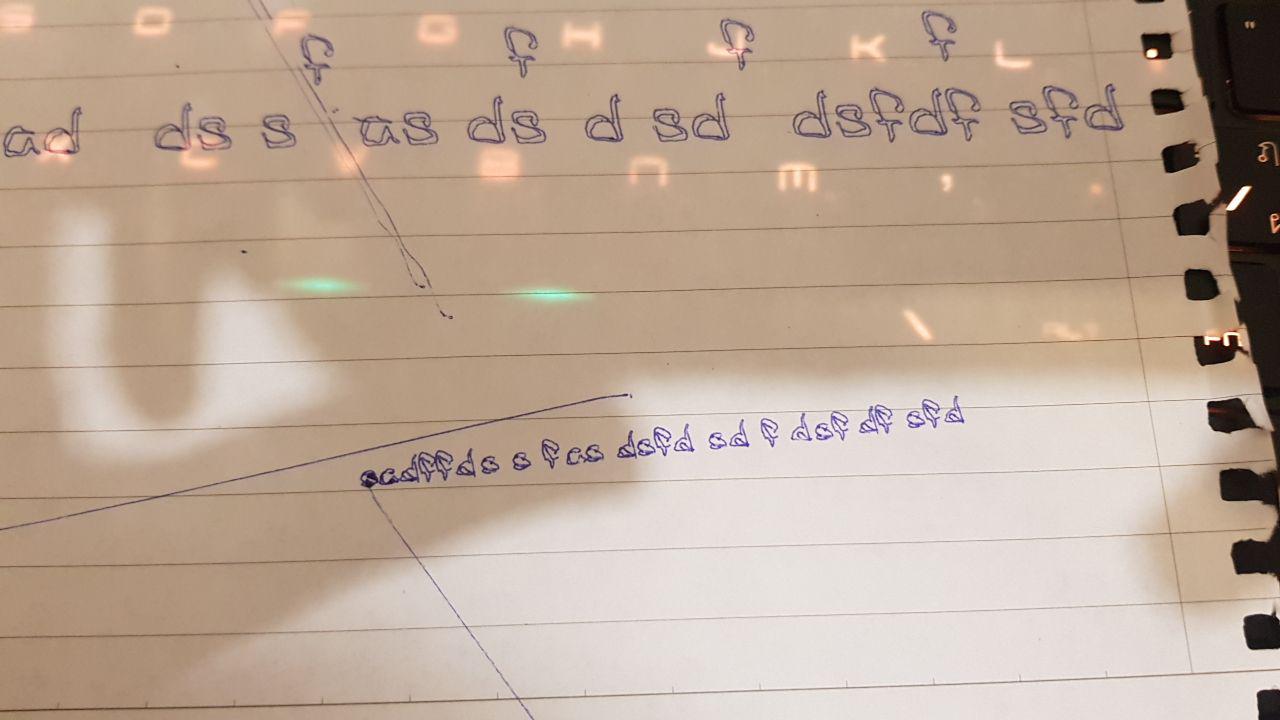 S D F G H J K L
f f f f
ad ds s as ds d sd dsfdf sfd
C V B N M , .
Fn
sadffds s f as dsfd sd f dsf df sfd